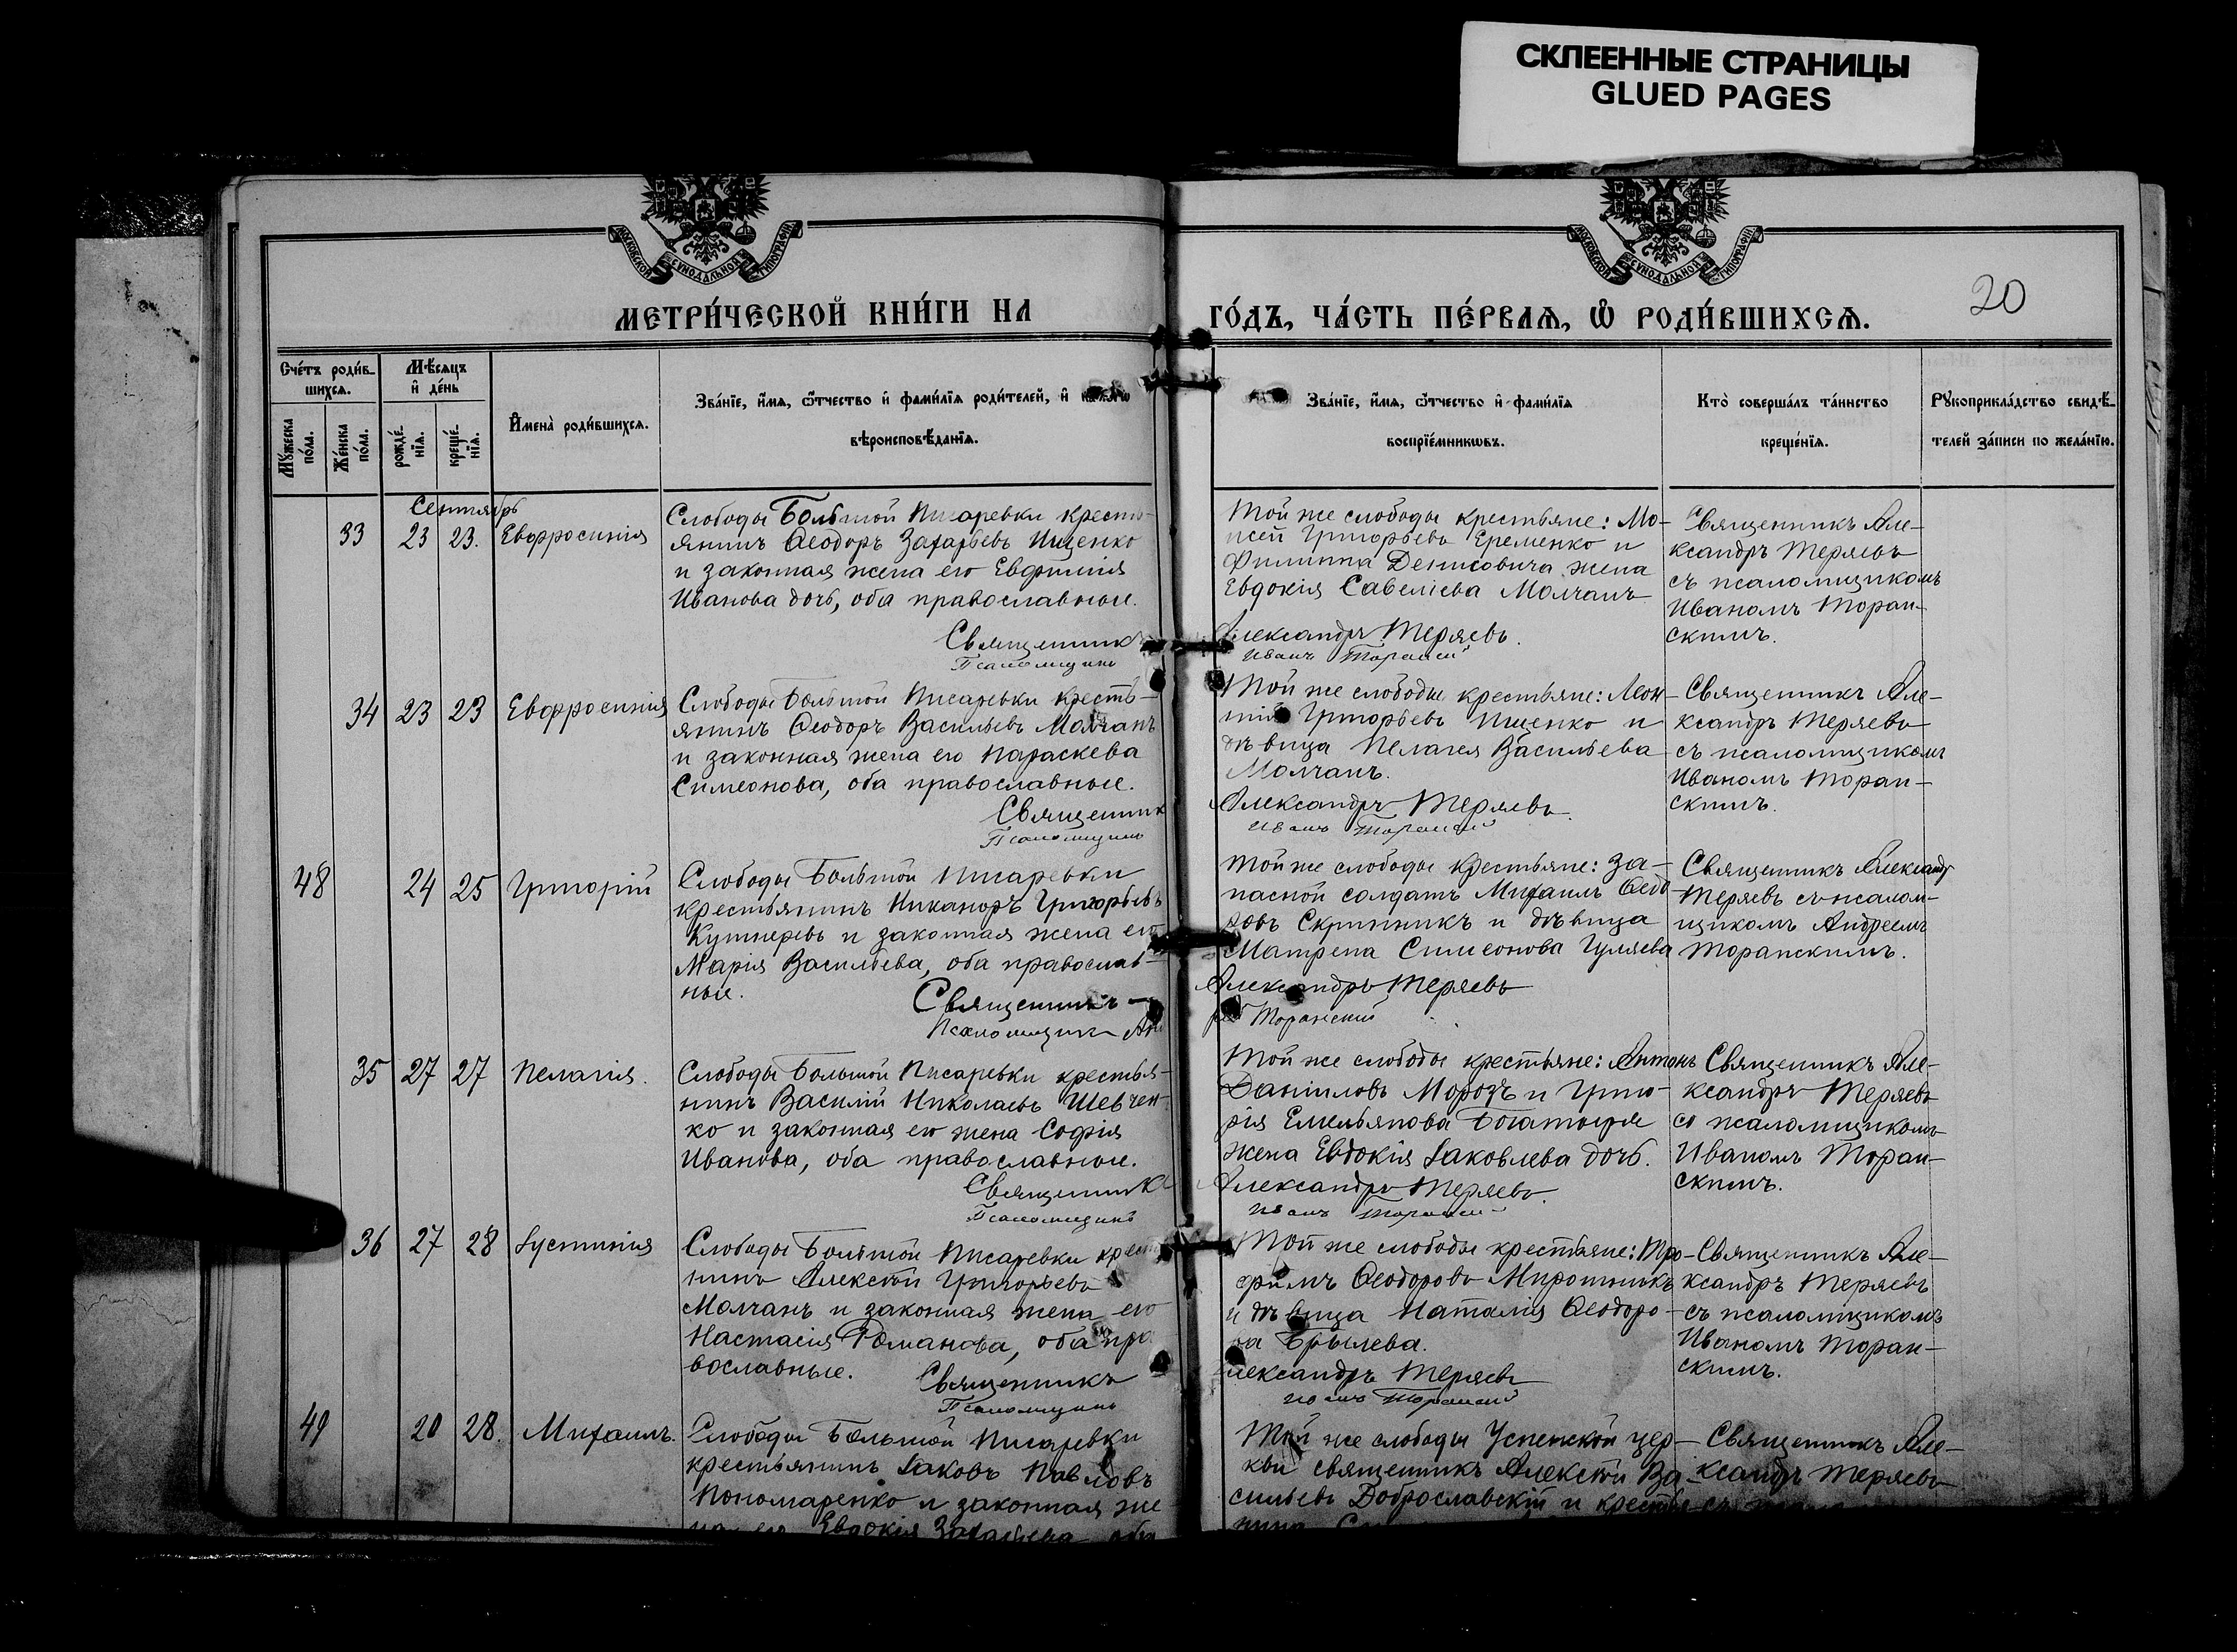 СКЛЕЕННЫЕ СТРАНИЦЫ
GLUED PAGES
МОСКОВСКОЙ СѴНОДАЛЬНОЙ ТИПОГРАФІИ
МОСКОВСКОЙ СѴНОДАЛЬНОЙ ТИПОГРАФІИ
МЕТРИ́ЧЕСКОЙ КНИ́ГИ НА
ГО́ДЪ, ЧА́СТЬ ПЕ́РВАѦ, Ѿ РОДИ́ВШИХСѦ.
20
Сче́тъ роди́в-
шихсѧ.
Мꙋ́жеска
по́ла.
Же́нска
по́ла.
Мѣ́сѧцъ
и҆ де́нь
рожде́-
нїѧ.
креще́-
нїѧ.
И҆мена̀ роди́вшихсѧ.
Зва́нїе, и҆́мѧ, ѻ҆́тчество и҆ фами́лїѧ роди́телей, и҆
вѣроисповѣ́данїѧ.
Зва́нїе, и҆́мѧ, ѻ҆́тчество и҆ фами́лїѧ
воспрїе́мникѡвъ.
Кто̀ соверша́лъ та́инство
креще́нїѧ.
Рꙋкоприкла́дство свидѣ́-
телей за́писи по жела́нїю.
Сентябрь
33 23 23. Евфросинія
Слободы Большой Писаревки кресть-
янинъ Ѳеодоръ Захарьевъ Ищенко
и законная жена его Евфимія
Иванова дочь, оба православные.
Священникъ
Псаломщикъ
Той же слободы крестьяне: Мо-
исей Григорьевъ Еременко и
Филиппа Денисовича жена
Евдокія Савеліева Молчанъ
Александръ Теряевъ.
Иванъ Торанскій
Священникъ Але-
ксандръ Теряевъ
съ псаломщикомъ
Иваномъ Торан-
скимъ.
34 23 23 Евфросинія
Слободы Большой Писаревки кресть-
янинъ Ѳеодоръ Васильевъ Молчанъ
и законная жена его Параскева
Симеонова, оба православные.
Священникъ
Псаломщикъ
Той же слободы крестьяне: Леон-
тій Григорьевъ Ищенко и
дѣвица Пелагея Васильева
Молчанъ.
Александръ Теряевъ.
Иванъ Торанскій
Священникъ Але-
ксандръ Теряевъ
съ псаломщикомъ
Иваномъ Торан-
скимъ.
48 24 25 Григорій
Слободы Большой Писаревки
крестьянинъ Никаноръ Григорьевъ
Кушнеревъ и законная жена его
Марія Васильева, оба православ-
ные.
Священникъ
Псаломщикъ Анд
Той же слободы крестьяне: За-
пасной солдатъ Михаилъ Ѳедо-
ровъ Скринникъ и дѣвица
Матрена Симеонова Гуляева
Александръ Теряевъ
рей Торанскій
Священникъ Александръ
Теряевъ съ псалом-
щикомъ Андреемъ
Торанскимъ.
35 27 27 Пелагія.
Слободы Большой Писаревки крестья-
нинъ Василій Николаевъ Шевчен-
ко и законная его жена Софія
Иванова, оба православные.
Священникъ
Псаломщикъ
Той же слободы крестьяне: Антонъ
Даніиловъ Морозъ и Григо-
рія Емельянова Богатыря
жена Евдокія Іаковлева дочь.
Александръ Теряевъ.
Иванъ Торанскій
Священникъ Але-
ксандръ Теряевъ
со псаломщикомъ
Иваномъ Торан-
скимъ.
36 27 28 Іустинія
Слободы Большой Писаревки кресть
нинъ Алексѣй Григорьевъ
Молчанъ и законная жена его
Настасія Романова, оба пра
вославные.
Священникъ
Псаломщикъ
Той же слободы крестьяне: Тро-
фимъ Ѳеодоровъ Мирошникъ
и дѣвица Наталія Ѳеодоро-
ва Брылева.
Александръ Теряевъ
Иванъ Торанскій
Священникъ Але-
ксандръ Теряевъ
съ псаломщикомъ
Иваномъ Торан-
скимъ.
49 20 28. Михаилъ.
Слободы Большой Писаревки
крестьянинъ Іаковъ Павловъ
Пономаренко и законная же-
на его Евдокія Захарьева оба
Той же слободы Успенской цер-
кви священникъ Алексѣй Ва-
сильевъ Доброславскій и крестья
Священникъ Але-
ксандръ Теряевъ